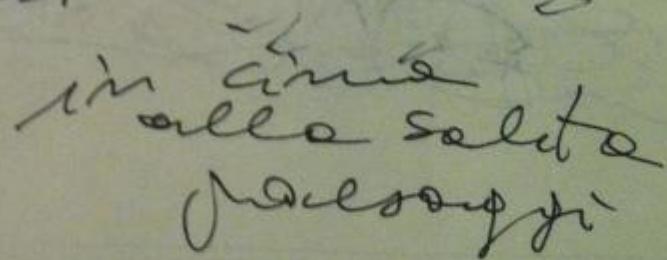 in cima
alla salita
paesaggi